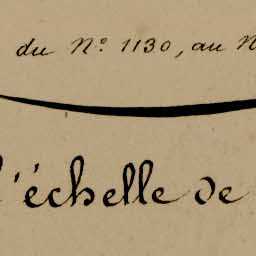 du N.º 1130, au N
l'échelle de